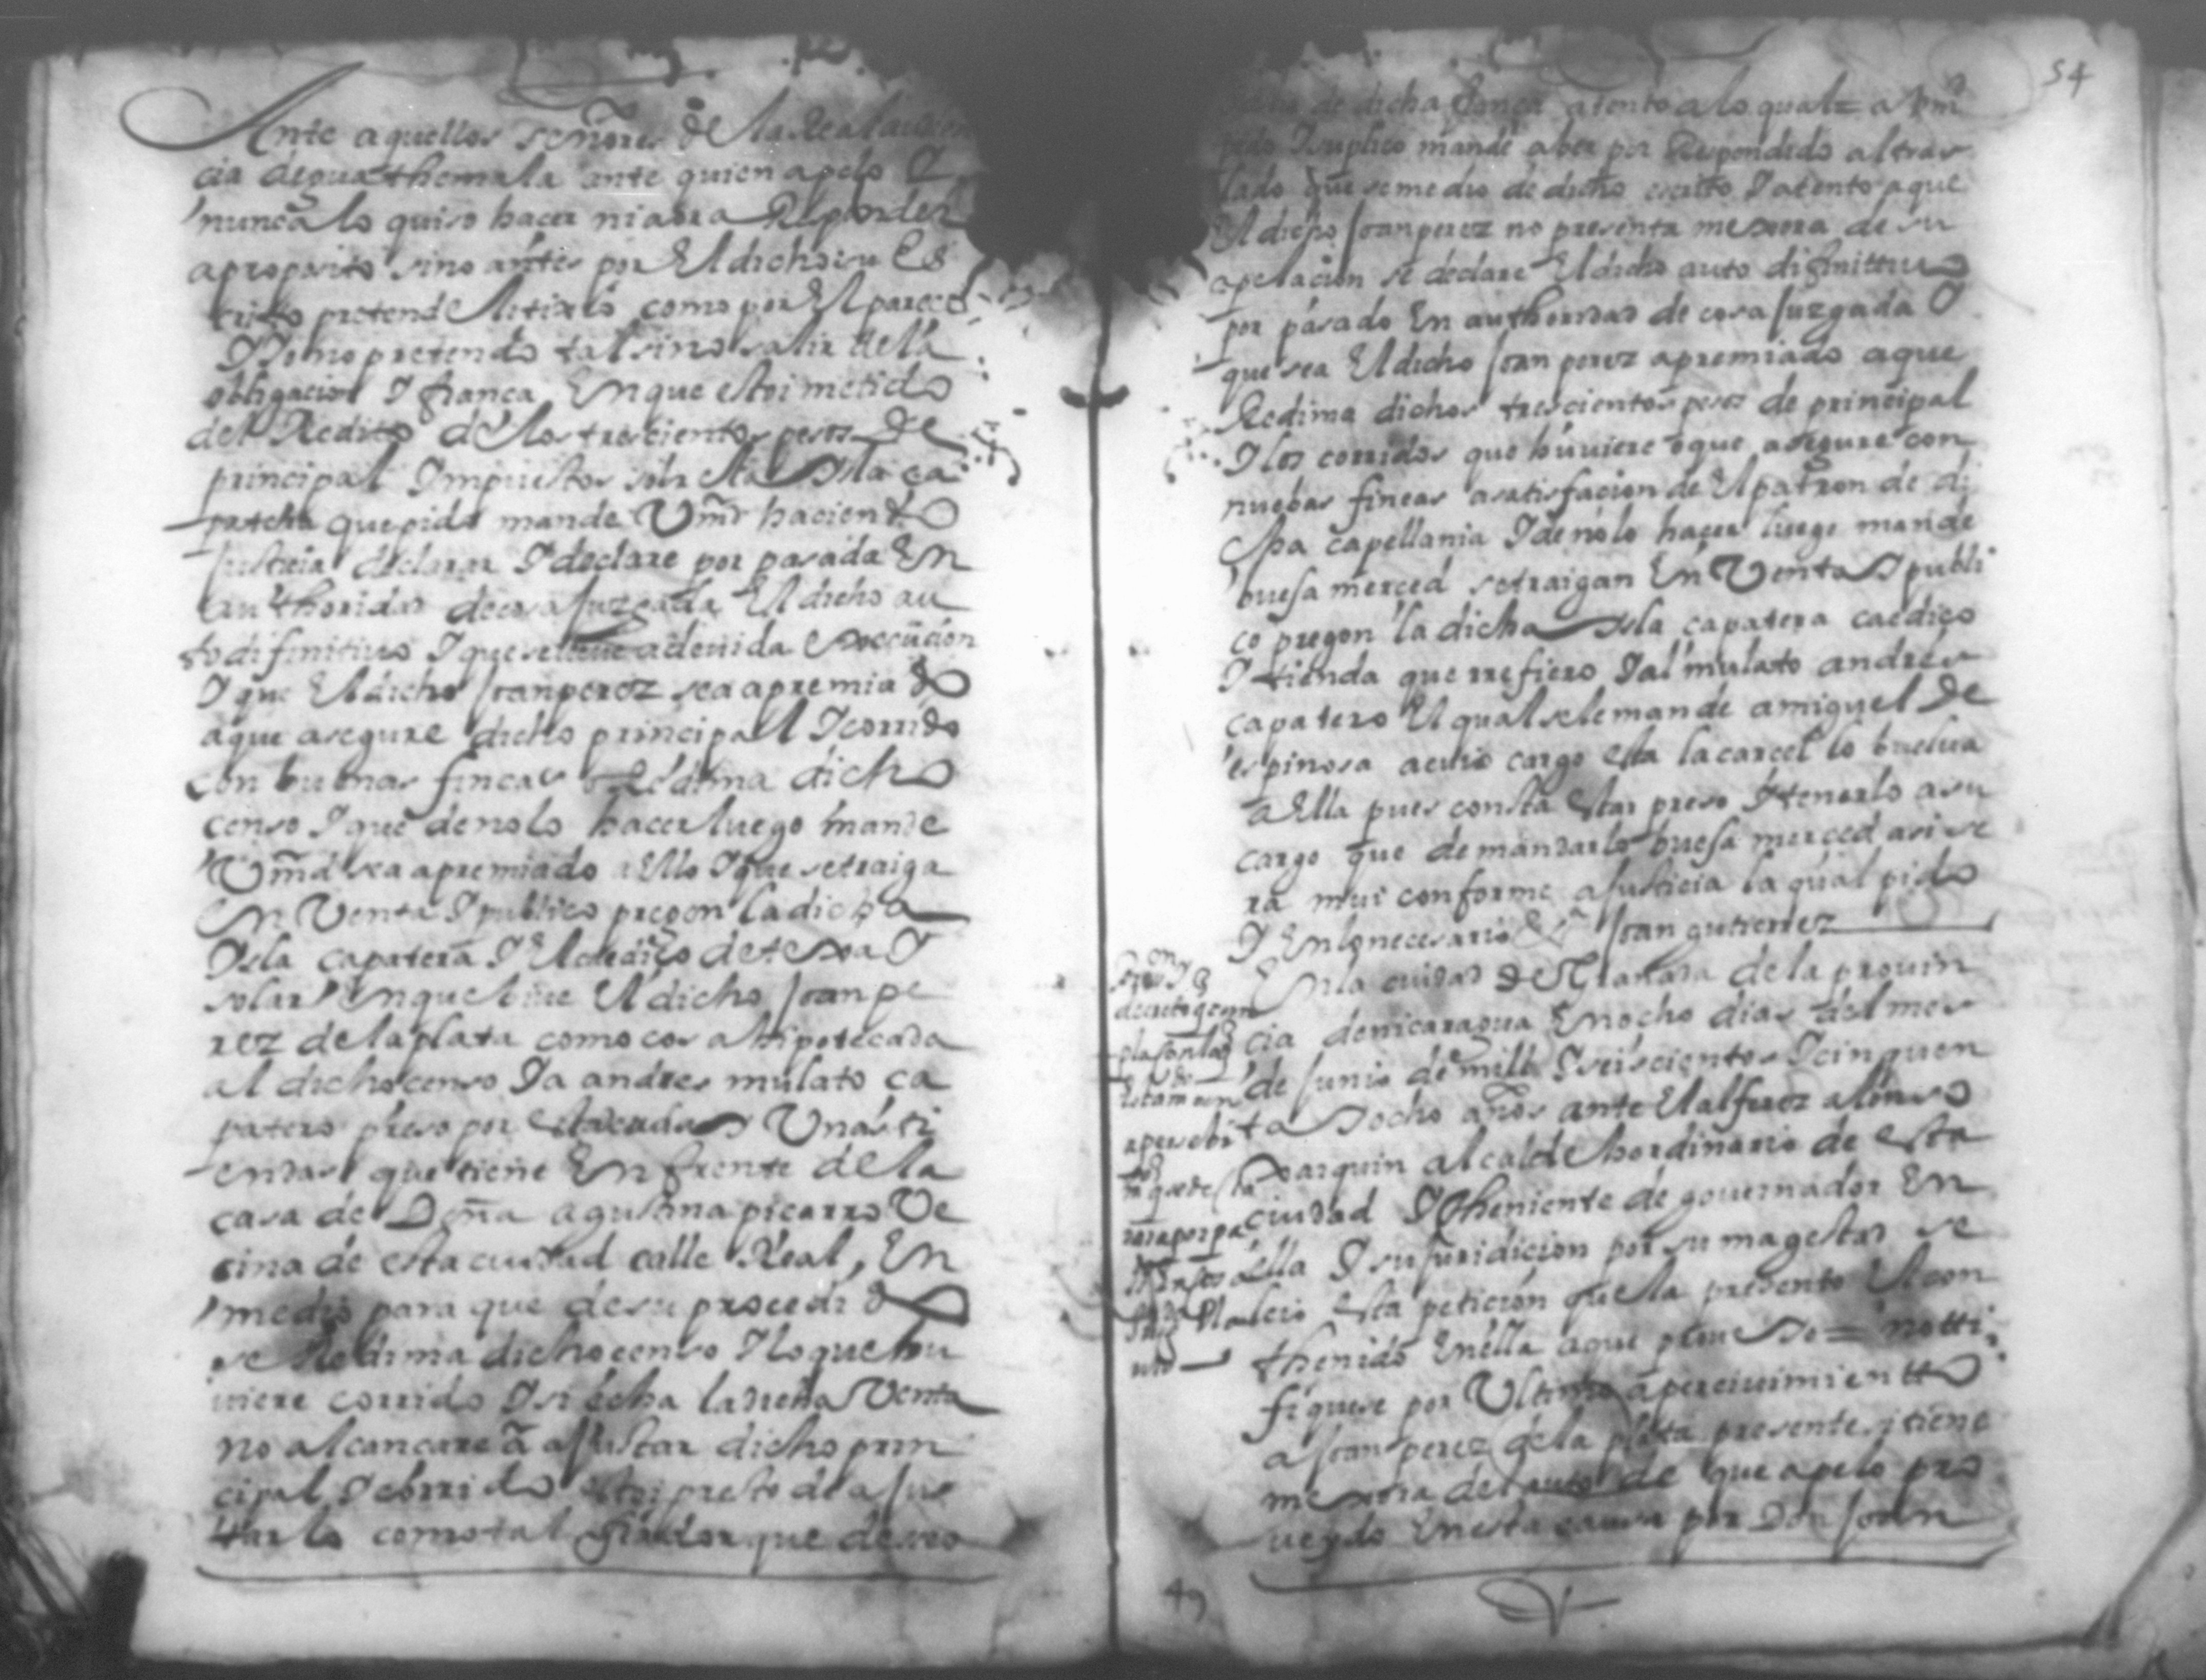 Ante aquellos señores de la Real audien
cia de guathemala ante quien apelo I
nunca lo quiso hacer ni aora Responder
a proposito sino antes por El dicho su Es
crito pretende litixio como por El parece
I Yo no pretendo tal sino salir de la
obligacion I fiança En que estoi metido
del Redito de los trescientos pesos de
principal Impuestos sobre esta Isla ça
patera que pido mande Vmd haciendo
Justicia declarar I declare por pasada En
authoridad de cosa Juzgada El dicho au
to difinitiuo I que se lleue a deuida execucion
I que El dicho Joan perez sea apremiado
a que asegure dicho principal I corrido
con buenas fincas o Redima dicho
censo I que de no lo hacer luego mande
Vmd sea apremiado a Ello I que se traiga
En Venta I publico pregon la dicha
Isla capatera I El aedifiço de texa I
solar En que biue El dicho Joan pe
rez de la plata como cosa hipotecada
al dicho censo I a andres mulato ça
patero preso por Unas ti
endas que tiene En frente de la
casa de Doña agustina piçarro Ve
cina de esta ciudad calle Real, En
medio para que de su procedido
se Redima dicho censo I lo que hu
uiere corrido I si echa la dicha Venta
no alcançare a aJustar dicho prin
cipal I corrido estoi presto de aJus
tarlo como tal fiador que deseo
54
de dicha fiança atento a lo qual = a Vmd
pido I suplico mande aber por Respondido al tras
lado que se me dio de dicho escrito I atento a que
El dicho Joan perez no presenta mexora de su
apelacion se declare El dicho auto difinittiuo
por pasado En authoridad de cosa Juzgada I
que sea El dicho Joan perez apremiado a que
Redima dichos trescientos pesos de principal
I los corridos que huuiere o que asegure con
nuebas fincas a satisfacion de El patron de di
cha capellania I de no lo hacer luego mande
buesa merced se traigan En Venta I publi
co pregon la dicha Isla çapatera caediço
I tienda que rrefiero I al mulato andres
çapatero El qual se le mande a miguel de
espinosa a cuio cargo esta la carcel lo buelua
a Ella pues consta estar preso I tenerlo a su
cargo que de mandarlo buesa merced asi se
ra mui conforme a Justicia la qual pido
I En lo necesario Joan gutierrez
En la ciudad de Granada de la prouin
cia de nicaragua En ocho dias del mes
de Junio de mill I seiscientos I cinquen
ta I ocho años ante El alferez alonso
Joarquin alcalde hordinario de esta
ciudad I theniente de gouernador En
ella I su Juridicion por su magestad se
leio esta peticion que la presento El con
thenido En ella a que proueyo = notti
fiquese por Ultimo apercieuimientto
a Joan perez de la plata presente si tiene
mexora del auto de que apelo pro
ueydo En esta causa por Don Joan
49